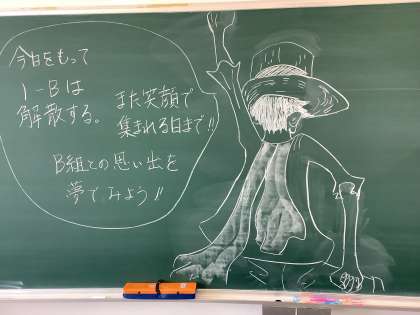 今日をもって
1-Bは
解散する。
また笑顔で
集まれる日まで!!
B組との思い出を
夢でみよう!!